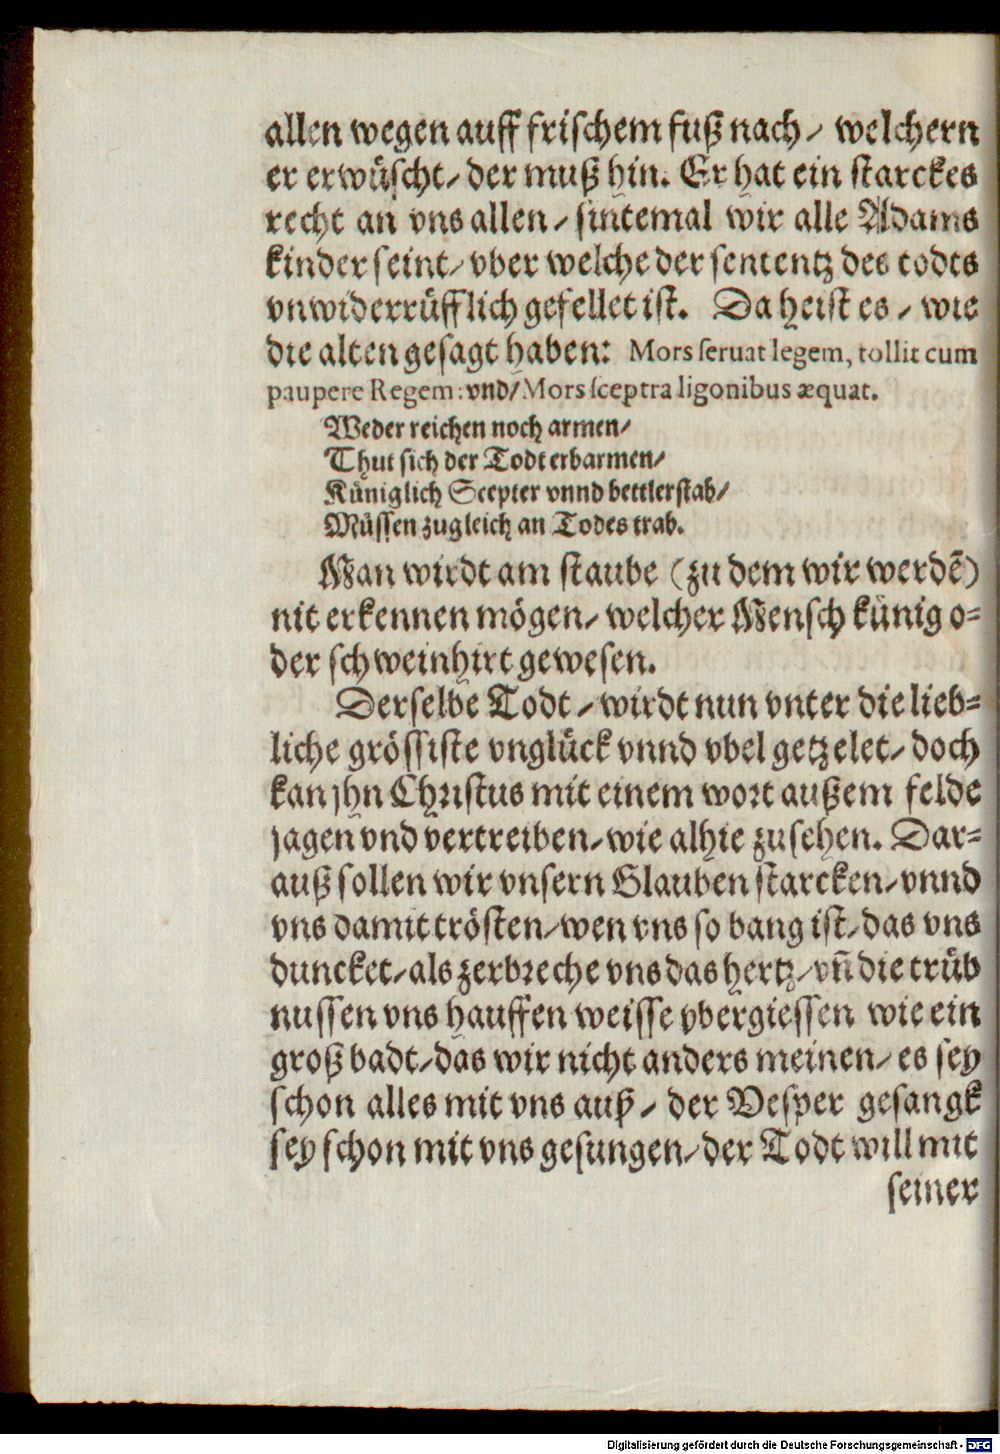 allen wegen auff frischem fuß nach/ welchern
er erwüscht/ der muß hin. Er hat ein starckes
recht an vns allen/ sintemal wir alle Adams
kinder seint/ vber welche der sententz des todts
vnwiderrüfflich gefellet ist. Da heist es/ wie
die alten gesagt haben: Mors seruat legem, tollit cum
paupere Regem: vnd/ Mors sceptra ligonibus æquat.
Weder reichen noch armen/
Thut sich der Todt erbarmen/
Küniglich Scepter vnnd bettlerstab/
Müssen zugleich an Todes trab.
Man wirdt am staube (zu dem wir werdē)
nit erkennen mögen/ welcher Mensch künig o-
der schweinhirt gewesen.
Derselbe Todt/ wirdt nun vnter die lieb-
liche grössiste vnglück vnnd vbel getzelet/ doch
kan jhn Christus mit einem wort außem felde
jagen vnd vertreiben/ wie alhie zusehen. Dar-
auß sollen wir vnsern Glauben starcken/ vnnd
vns damit trösten/ wen vns so bang ist/ das vns
duncket/ als zerbreche vns das hertz/ vñ die trüb
nussen vns hauffen weisse vbergiessen wie ein
groß badt/ das wir nicht anders meinen/ es sey
schon alles mit vns auß/ der Vesper gesangk
sey schon mit vns gesungen/ der Todt will mit
seiner
Digitalisierung gefördert durch die Deutsche Forschungsgemeinschaft - DFG